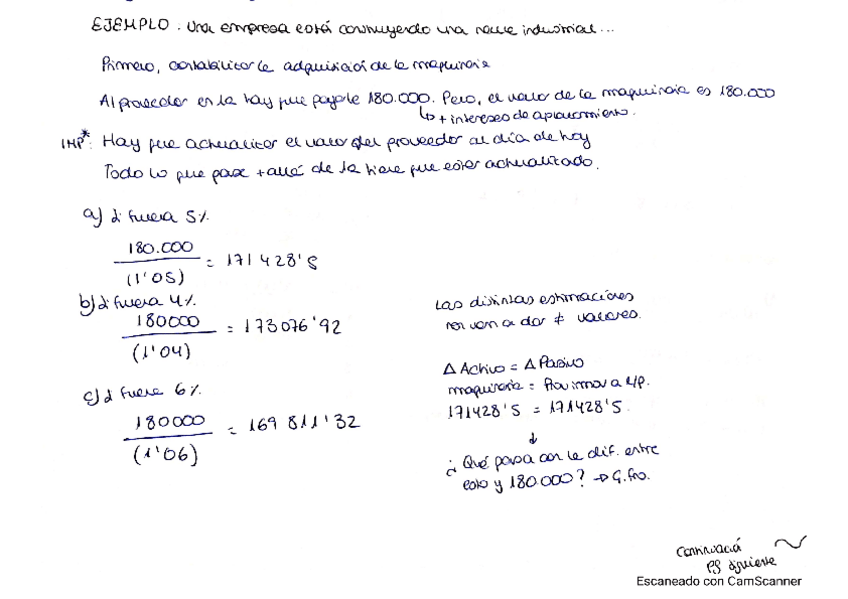 EJEMPLO: Una empresa está construyendo una nave industrial...
Primero, contabilizar la adquisición de la maquinaria
Al proveedor en 1a hay que pagarle 180.000. Pero, el valor de la maquinaria es 180.000
↳ + intereses de aplazamiento.
IMP*: Hay que actualizar el valor del proveedor al día de hoy
Todo lo que pase + allá de 1a tiene que estar actualizado.
a) Si fuera 5%
180.000
/(1'05) = 171428'5
b) Si fuera 4%
180000
/(1'04) = 173076'92
c) Si fuera 6%
180000
/(1'06) = 169811'32
Las distintas estimaciones
nos van a dar ≠ valores.
Δ Activo = Δ Pasivo
maquinaria = Prov inmov a l/p.
171428'5 = 171428'5
↓
¿Qué pasa con la dif. entre
esto y 180.000? → G. fro.
Continuació
pg siguiente
Escaneado con CamScanner